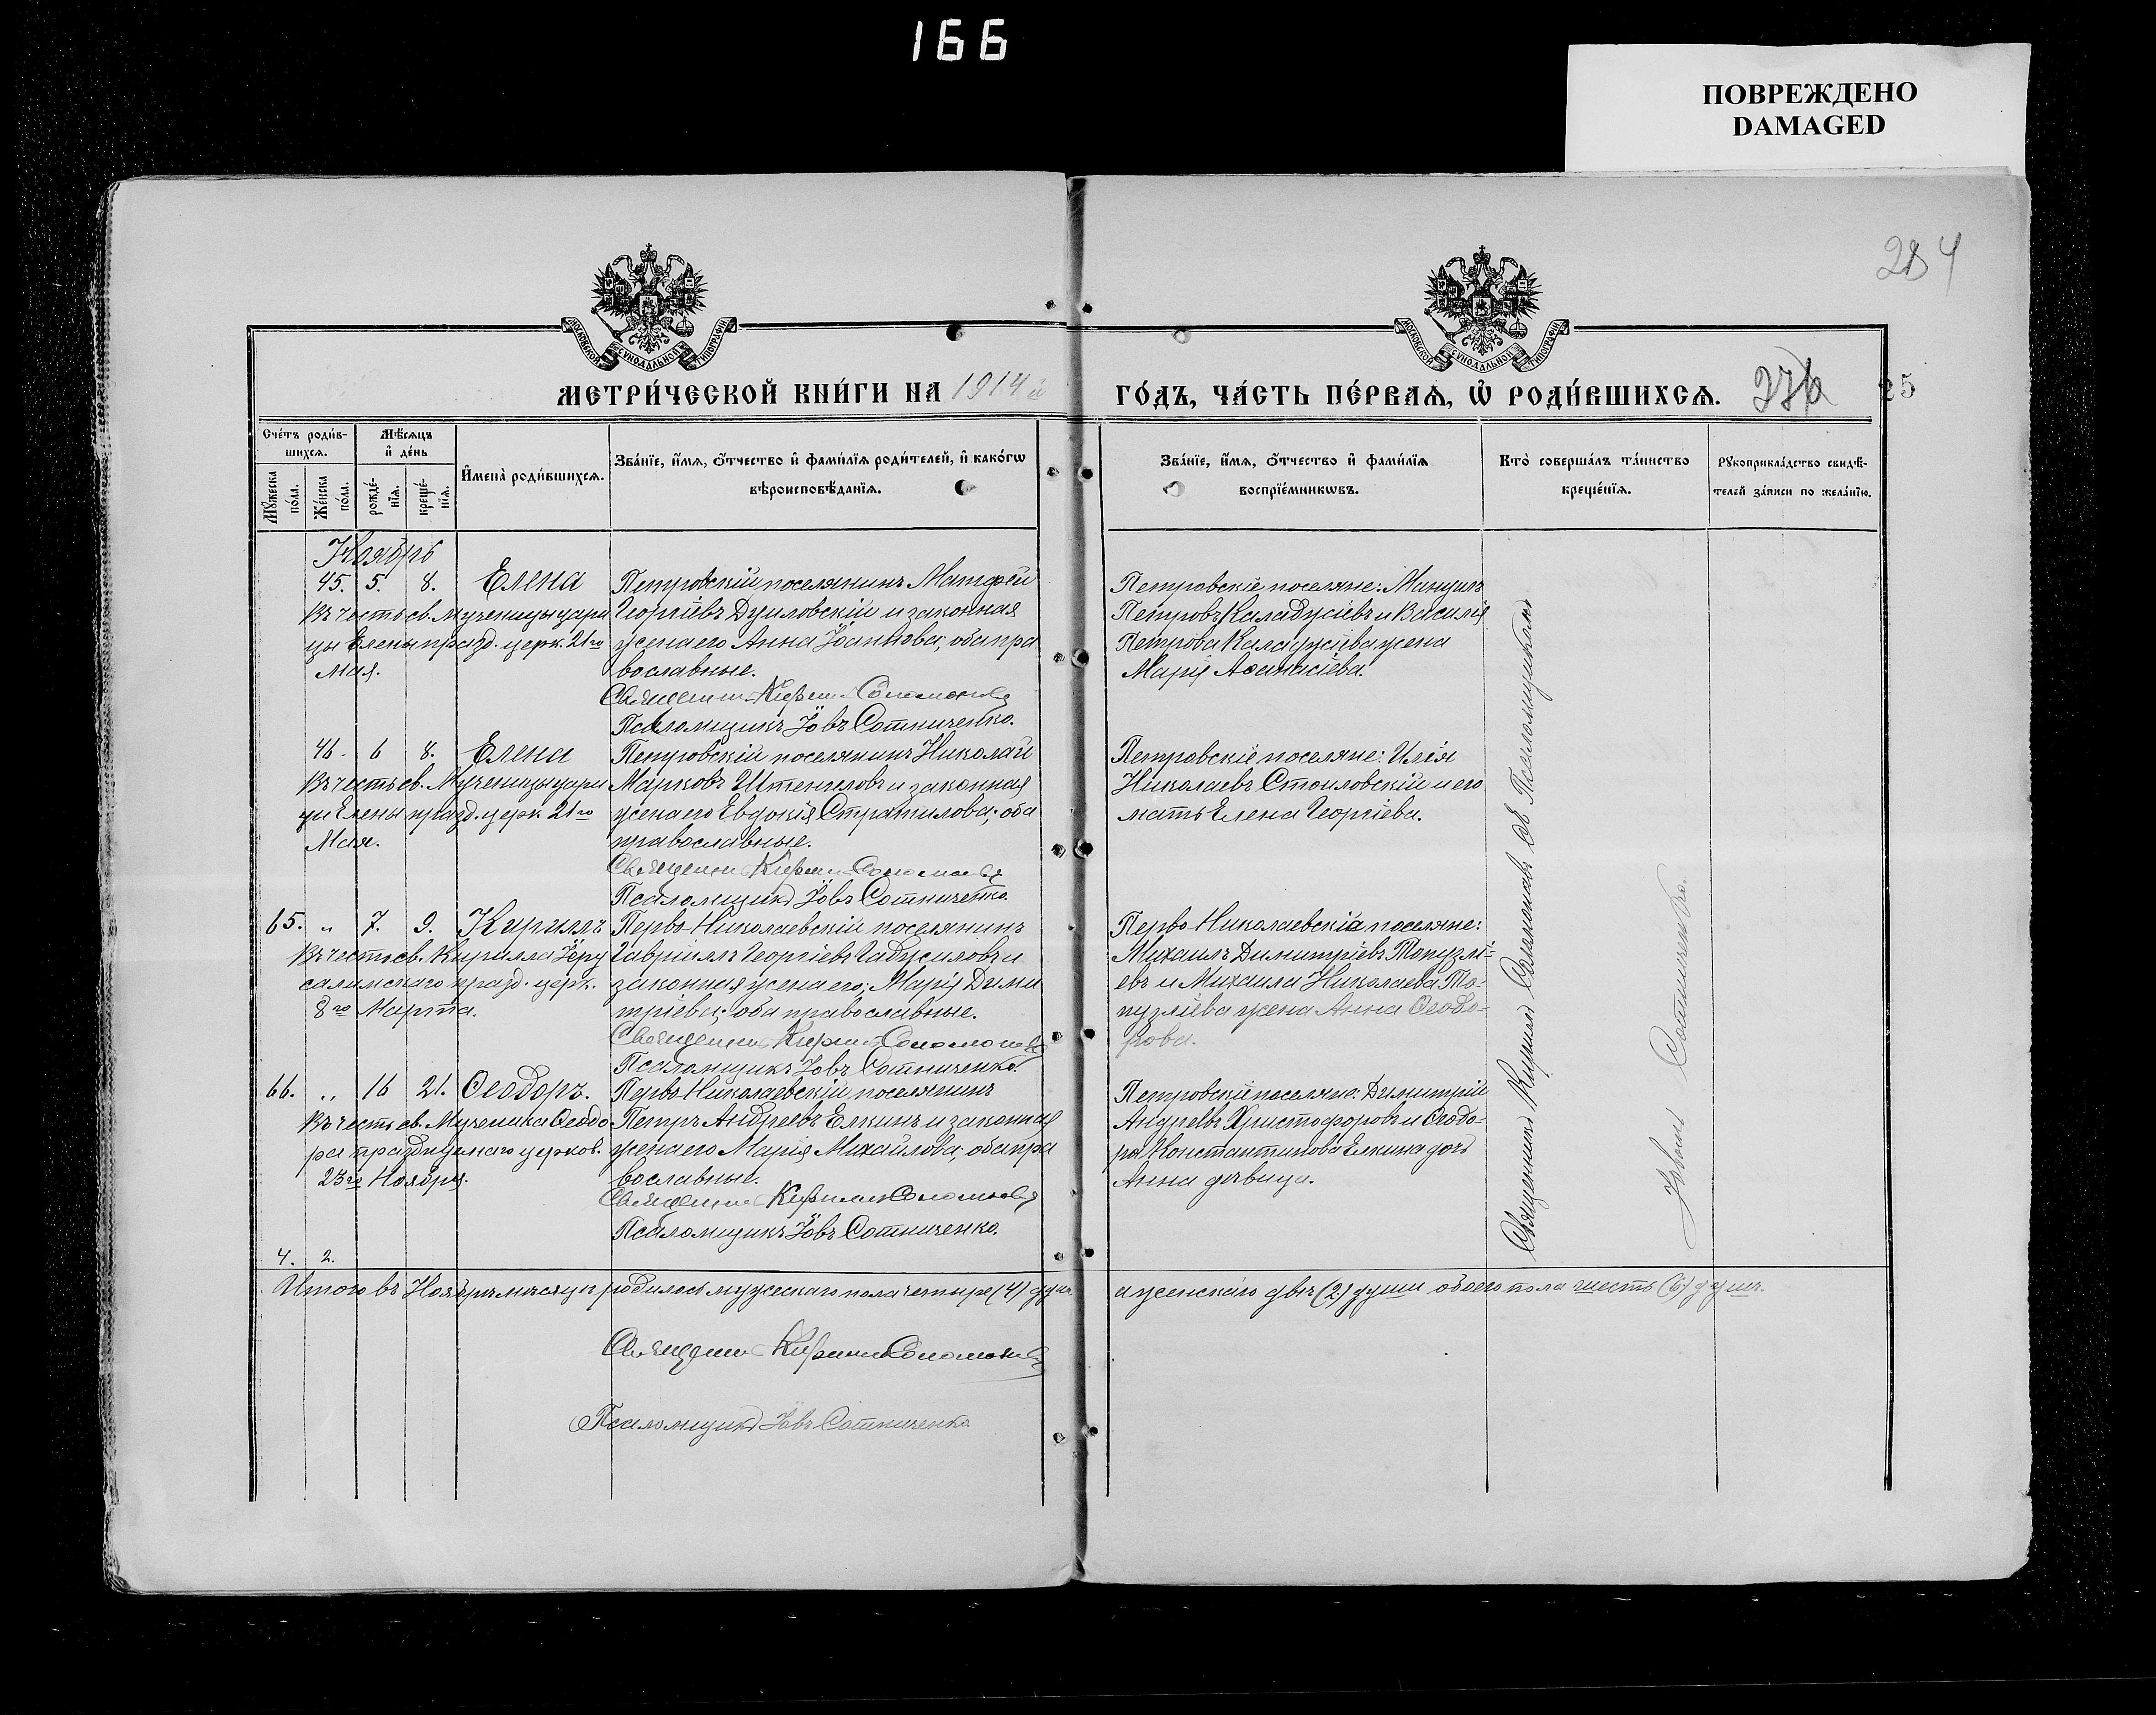 166
ПОВРЕЖДЕНО
DAMAGED
284
МОСКОВСКОЙ СѴНОДАЛЬНОЙ ТИПОГРАФІИ
МОСКОВСКОЙ СѴНОДАЛЬНОЙ ТИПОГРАФІИ
МЕТРИ́ЧЕСКОЙ КНИ́ГИ НА 1914 й ГО́ДЪ, ЧА́СТЬ ПЕ́РВАѦ, Ѡ҆ РОДИ́ВШИХСѦ.
25
Сче́тъ роди́в-
шихсѧ.
Мꙋ́жеска по́ла.
Же́нска по́ла.
Мѣ́сѧцъ
и҆ де́нь
рожде́-
нїѧ.
креще́-
нїѧ.
И҆мена̀ роди́вшихсѧ.
Зва́нїе, и҆́мѧ, ѻ҆́тчество и҆ фами́лїѧ роди́телей, и҆ како́гѡ
вѣроисповѣ́данїѧ.
Зва́нїе, и҆́мѧ, ѻ҆́тчество и҆ фами́лїѧ
воспрїе́мникѡвъ.
Кто̀ соверша́лъ та́инство
креще́нїѧ.
Рꙋкоприкла́дство свидѣ́-
телей за́писи по жела́нїю.
Ноябрь
45. 5. 8. Елена
Въ честь св. Мученицы цари
цы Елены празд. церк. 21го
Мая.
Петровскій поселянинъ Матфей
Георгіевъ Дуиловскій и законная
жена его Анна Іоаннова; оба пра
вославные.
Священникъ Кириллъ Соломоновъ
Псаломщикъ Іовъ Сотниченко.
Петровскіе поселяне: Мануилъ
Петровъ Каладжіевъ и Василія
Петрова Каладжіева жена
Марія Аѳанасіева.
46. 6 8. Елена
Въ честь св. Мученицы цари
цы Елены празд. церк. 21го
Мая.
Петровскій поселянинъ Николай
Марковъ и законная
жена его Евдокія Стратилова; оба
православные.
Священникъ Кириллъ Соломоновъ
Псаломщикъ Іовъ Сотниченко.
Петровскіе поселяне: Илія
Николаевъ Стоиловскій и его
мать Елена Георгіева.
65. „ 7. 9. Кириллъ
Въ честь св. Кирилла Іеру
салимскаго празд. церк.
8го Марта.
Перво Николаевскій поселянинъ
Гавріилъ Георгіевъ и
законная жена его; Марія Дими
тріева; оба православные.
Священникъ Кириллъ Соломоновъ
Псаломщикъ Іовъ Сотниченко.
Перво Николаевскіа поселяне:
Михаилъ Димитріевъ Топузлі-
евъ и Михаила Николаева То-
пузліева жена Анна Ѳеодо-
рова.
66. „ 16 21. Ѳеодоръ.
Въ честь св. Мученика Ѳеодо
ра празднуемаго церков.
23го Ноября.
Перво Николаевскій поселянинъ
Петръ Андреевъ Елкинъ и законная
жена его Марія Михайлова; оба пра
вославные.
Священникъ Кириллъ Соломоновъ
Псаломщикъ Іовъ Сотниченко.
Петровскіи поселяне: Димитрій
Андреевъ Христофоровъ и Ѳеодо-
ра Константинова Елкина дочь
Анна дѣвица.
Священникъ Кириллъ Соломоновъ съ Псаломщикомъ
Іовомъ Сотниченко.
4. 2.
Итого въ Ноябрѣ мѣсяцѣ родилось мужескаго пола четыре (4) душ.
а женскаго двѣ (2) души обоего пола шесть (6) душъ.
Священникъ Кириллъ Соломоновъ
Псаломщикъ Іовъ Сотниченко